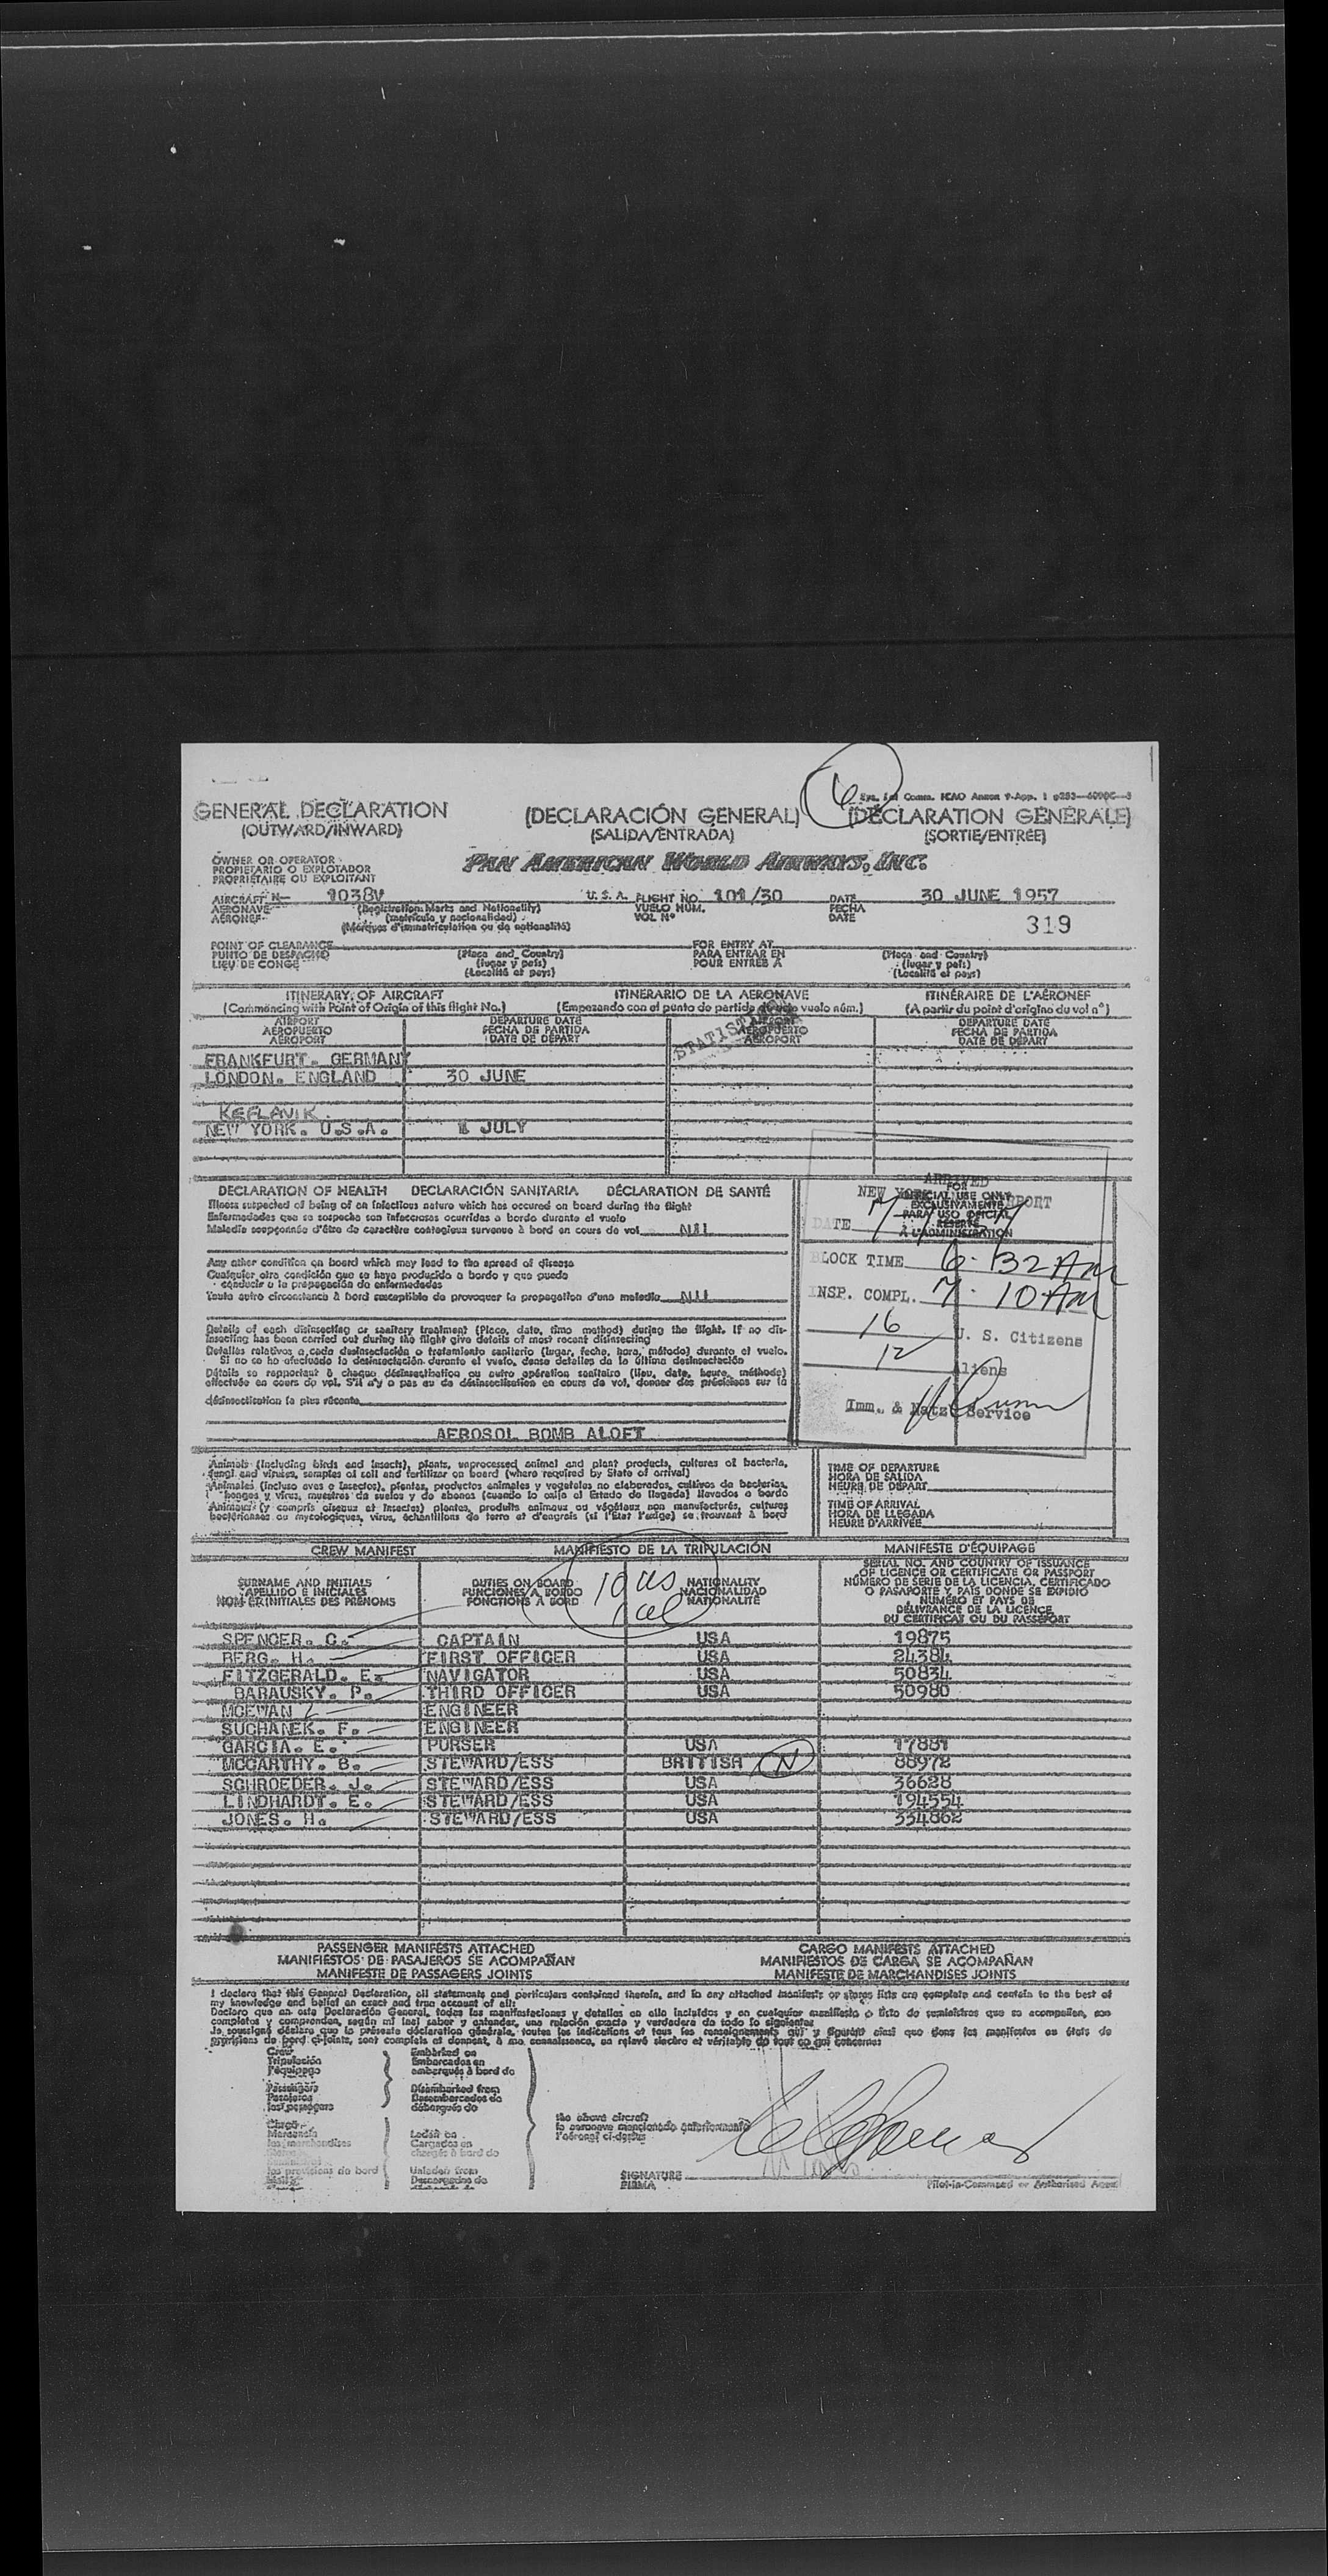 6
Sys. Int Comm. ICAO Annex 9-App. 1
GENERAL DECLARATION (DECLARACIÓN GENERAL) (DÉCLARATION GÉNÉRALE)
(OUTWARD/INWARD) (SALIDA/ENTRADA) (SORTIE/ENTRÉE)
OWNER OR OPERATOR
PROPIETARIO O EXPLOTADOR
PROPRIÉTAIRE OU EXPLOITANT
PAN AMERICAN WORLD AIRWAYS, INC.
AIRCRAFT N- 1038V U. S. A. FLIGHT NO. 101/30 DATE 30 JUNE 1957
AERONAVE (Registration Marks and Nationality) VUELO NUM. FECHA
AÉRONEF (matrícula y nacionalidad) VOL Nº DATE 319
(Marques d'immatriculation ou de nationalité)
POINT OF CLEARANCE (Place and Country) FOR ENTRY AT (Place and Country)
PUNTO DE DESPACHO (lugar y país) PARA ENTRAR EN (lugar y país)
LIEU DE CONGÉ (Localité et pays) POUR ENTRÉE À (Localité et pays)
ITINERARY OF AIRCRAFT ITINERARIO DE LA AERONAVE ITINÉRAIRE DE L'AÉRONEF
(Commencing with Point of Origin of this flight No.) (Empezando con el punto de partida de este vuelo núm.) (A partir du point d'origine du vol nº)
AIRPORT DEPARTURE DATE AIRPORT DEPARTURE DATE
AEROPUERTO FECHA DE PARTIDA AEROPUERTO FECHA DE PARTIDA
AÉROPORT DATE DE DÉPART AÉROPORT DATE DE DÉPART
FRANKFURT. GERMANY
LONDON. ENGLAND 30 JUNE
KEFLAVIK
NEW YORK. U.S.A. 1 JULY
DECLARATION OF HEALTH DECLARACIÓN SANITARIA DÉCLARATION DE SANTÉ
Illness suspected of being of an infectious nature which has occured on board during the flight
Enfermedades que se sospecha son infecciosas ocurridas a bordo durante el vuelo
Maladie soupçonnée d'être de caractère contagieux survenue à bord en cours de vol Nil
Any other condition on board which may lead to the spread of disease
Cualquier otra condición que se haya producido a bordo y que pueda
conducir a la propagación de enfermedades
Toute autre circonstance à bord susceptible de provoquer la propagation d'une maladie Nil
Details of each disinsecting or sanitary treatment (Place, date, time method) during the flight. If no disinsecting has been carried out during the flight give details of most recent disinsecting
Detalles relativos a cada desinsectación o tratamiento sanitario (lugar, fecha, hora, método) durante el vuelo.
Si no se ha efectuado la desinsectación durante el vuelo, dense detalles de la última desinsectación
Détails se rapportant à chaque désinsectisation ou autre opération sanitaire (lieu, date, heure, méthode)
effectuée en cours de vol. S'il n'y a pas eu de désinsectisation en cours de vol, donner des précisions sur la
désinsectisation la plus récente
AEROSOL BOMB ALOFT
ARRIVED
FOR OFFICIAL USE ONLY
EXCLUSIVAMENTE
PARA USO OFICIAL
RÉSERVÉ
À L'ADMINISTRATION
DATE
BLOCK TIME 6:32 AM
INSP. COMPL. 7:10 AM
16 U. S. Citizens
12 Aliens
Imm. & Natz Service
Animals (including birds and insects), plants, unprocessed animal and plant products, cultures of bacteria,
fungi and viruses, samples of soil and fertilizer on board (where required by State of arrival)
Animales (incluso aves e insectos), plantas, productos animales y vegetales no elaborados, cultivos de bacterias,
hongos y virus, muestras de suelos y de abonos (cuando lo exija el Estado de llegada) llevados a bordo
Animaux (y compris oiseaux et insectes) plantes, produits animaux ou végétaux non manufacturés, cultures
bactériennes ou mycologiques, virus, échantillons de terre et d'engrais (si l'État l'exige) se trouvant à bord
TIME OF DEPARTURE
HORA DE SALIDA
HEURE DE DÉPART
TIME OF ARRIVAL
HORA DE LLEGADA
HEURE D'ARRIVÉE
CREW MANIFEST MANIFIESTO DE LA TRIPULACIÓN MANIFESTE D'ÉQUIPAGE
SURNAME AND INITIALS
APELLIDO E INICIALES
NOM ET INITIALES DES PRÉNOMS
DUTIES ON BOARD
FUNCIONES A BORDO
FONCTIONS À BORD
10 US
1 al
NATIONALITY
NACIONALIDAD
NATIONALITÉ
SERIAL NO. AND COUNTRY OF ISSUANCE
OF LICENCE OR CERTIFICATE OR PASSPORT
NÚMERO DE SERIE DE LA LICENCIA, CERTIFICADO
O PASAPORTE Y PAÍS DONDE SE EXPIDIÓ
NUMÉRO ET PAYS DE
DÉLIVRANCE DE LA LICENCE
DU CERTIFICAT OU DU PASSEPORT
SPENCER. C. CAPTAIN USA 19875
BERG. H. FIRST OFFICER USA 24384
FITZGERALD. E. NAVIGATOR USA 50834
BARAUSKY. P. THIRD OFFICER USA 50980
MCEWAN ENGINEER
SUCHANEK. F. ENGINEER
GARCIA. E. PURSER USA 17881
MCCARTHY. B. STEWARD/ESS BRITISH N 88972
SCHROEDER. J. STEWARD/ESS USA 36628
LINDHARDT. E. STEWARD/ESS USA 194554
JONES. H. STEWARD/ESS USA 334862
PASSENGER MANIFESTS ATTACHED CARGO MANIFESTS ATTACHED
MANIFIESTOS DE PASAJEROS SE ACOMPAÑAN MANIFIESTOS DE CARGA SE ACOMPAÑAN
MANIFESTE DE PASSAGERS JOINTS MANIFESTE DE MARCHANDISES JOINTS
I declare that this General Declaration, all statements and particulars contained therein, and in any attached manifests or stores lists are complete and contain to the best of
my knowledge and belief an exact and true account of all:
Declaro que en esta Declaración General, todas las manifestaciones y detalles en ella incluidos y en cualquier manifiesto o lista de suministros que se acompañen, son
completos y comprenden, según mi leal saber y entender, una relación exacta y verdadera de todo lo siguiente:
Je soussigné déclare que la présente déclaration générale, toutes les indications et tous les renseignements qui y figurent ainsi que dans les manifestes ou états de
provisions de bord ci-joints, sont complets et donnent, à ma connaissance, un relevé sincère et véritable de tout ce qui concerne:
Crew Embarked on
Tripulación Embarcados en
l'équipage embarqués à bord de
Passengers Disembarked from
Pasajeros Desembarcados de
les passagers débarqués de
Cargo Laden on
Mercancía Cargados en
les marchandises chargés à bord de
les provisions de bord Unladen from
Descargados de
the above aircraft
la aeronave mencionada anteriormente
l'aéronef ci-dessus
SIGNATURE
FIRMA
Pilot-in-Command or Authorised Agent